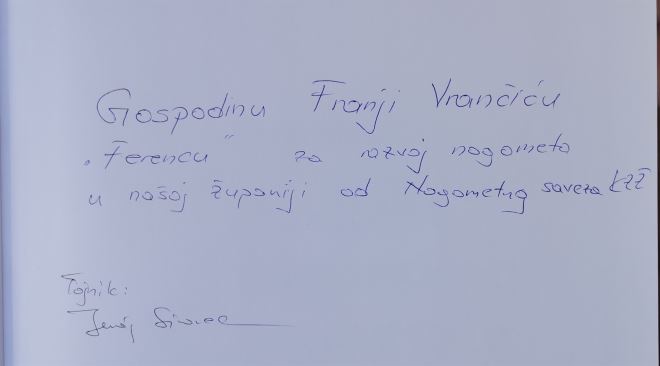 Gospodinu Franji Vrančiću
"Ferencu" za razvoj nogometa
u našoj županiji od Nogometnog saveza
Tajnik: